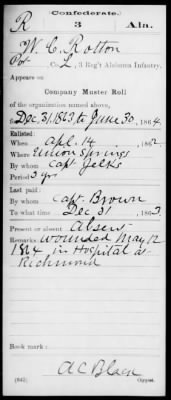 Confederate.
R 3 Ala.
W. C. Rotton
Pvt., Co. L, 3 Reg't Alabama Infantry.
Appears on
Company Muster Roll
of the organization named above,
for Dec. 31, 1863, to June 30, 1864.
Enlisted:
When Apl. 14, 1862.
Where Union Springs
By whom Capt. Jelks
Period 3 yrs
Last paid:
By whom Capt. Brown
To what time Dec 31, 1863.
Present or absent Absent
Remarks: wounded May 12
1864 in Hospital at
Richmond
Book mark:
A C Black
(642) Copyist.